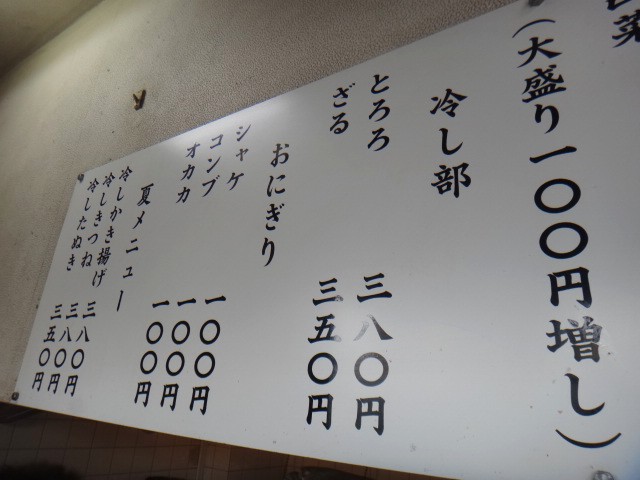 菜
（大盛り一〇〇円増し）
冷し部
とろろ 三八〇円
ざる 三五〇円
おにぎり
シャケ 一〇〇円
コンブ 一〇〇円
オカカ 一〇〇円
夏メニュー
冷しかき揚げ 三八〇円
冷しきつね 三八〇円
冷したぬき 三五〇円